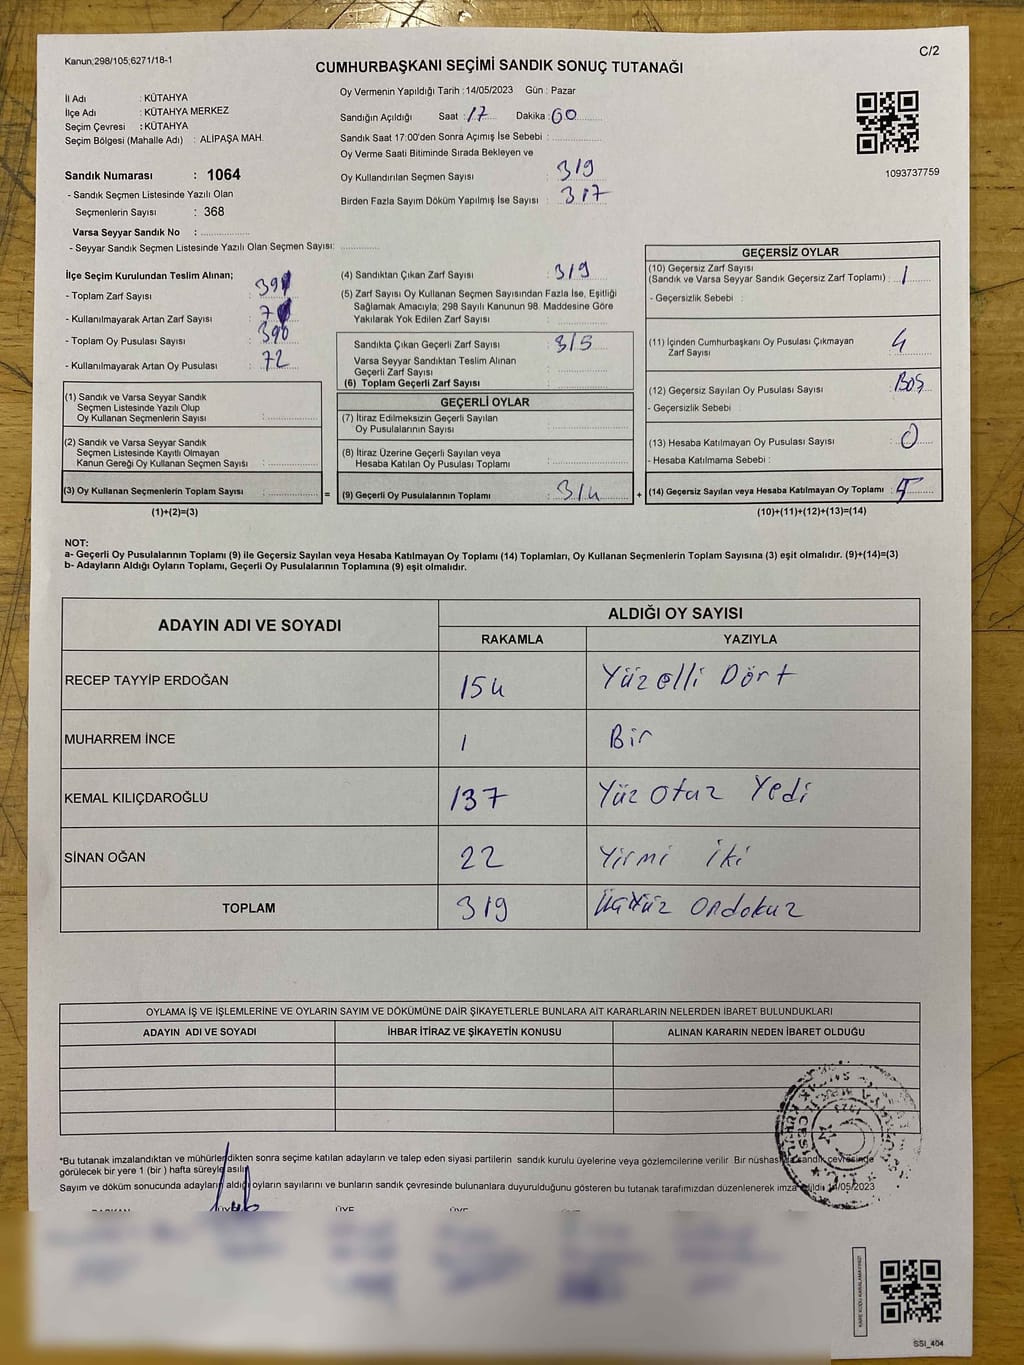 Kanun;298/105;6271/18-1
C/2
CUMHURBAŞKANI SEÇİMİ SANDIK SONUÇ TUTANAĞI
İl Adı : KÜTAHYA
İlçe Adı : KÜTAHYA MERKEZ
Seçim Çevresi : KÜTAHYA
Seçim Bölgesi (Mahalle Adı) : ALİPAŞA MAH.
Sandık Numarası : 1064
- Sandık Seçmen Listesinde Yazılı Olan
Seçmenlerin Sayısı : 368
Varsa Seyyar Sandık No :
- Seyyar Sandık Seçmen Listesinde Yazılı Olan Seçmen Sayısı:
Oy Vermenin Yapıldığı Tarih : 14/05/2023 Gün : Pazar
Sandığın Açıldığı Saat : 17 Dakika : 00
Sandık Saat 17:00'den Sonra Açımış İse Sebebi :
Oy Verme Saati Bitiminde Sırada Bekleyen ve
Oy Kullandırılan Seçmen Sayısı : 319
Birden Fazla Sayım Döküm Yapılmış İse Sayısı : 317
1093737759
İlçe Seçim Kurulundan Teslim Alınan;
- Toplam Zarf Sayısı :
- Kullanılmayarak Artan Zarf Sayısı :
- Toplam Oy Pusulası Sayısı : 390
- Kullanılmayarak Artan Oy Pusulası : 72
(1) Sandık ve Varsa Seyyar Sandık
Seçmen Listesinde Yazılı Olup
Oy Kullanan Seçmenlerin Sayısı :
(2) Sandık ve Varsa Seyyar Sandık
Seçmen Listesinde Kayıtlı Olmayan
Kanun Gereği Oy Kullanan Seçmen Sayısı :
(3) Oy Kullanan Seçmenlerin Toplam Sayısı :
(1)+(2)=(3)
(4) Sandıktan Çıkan Zarf Sayısı : 319
(5) Zarf Sayısı Oy Kullanan Seçmen Sayısından Fazla İse, Eşitliği
Sağlamak Amacıyla; 298 Sayılı Kanunun 98. Maddesine Göre
Yakılarak Yok Edilen Zarf Sayısı :
Sandıkta Çıkan Geçerli Zarf Sayısı : 315
Varsa Seyyar Sandıktan Teslim Alınan
Geçerli Zarf Sayısı :
(6) Toplam Geçerli Zarf Sayısı :
GEÇERLİ OYLAR
(7) İtiraz Edilmeksizin Geçerli Sayılan
Oy Pusulalarının Sayısı :
(8) İtiraz Üzerine Geçerli Sayılan veya
Hesaba Katılan Oy Pusulası Toplamı :
= (9) Geçerli Oy Pusulalarının Toplamı : 314 +
GEÇERSİZ OYLAR
(10) Geçersiz Zarf Sayısı
(Sandık ve Varsa Seyyar Sandık Geçersiz Zarf Toplamı) : 1
- Geçersizlik Sebebi :
(11) İçinden Cumhurbaşkanı Oy Pusulası Çıkmayan
Zarf Sayısı : 4
(12) Geçersiz Sayılan Oy Pusulası Sayısı : BOŞ
- Geçersizlik Sebebi :
(13) Hesaba Katılmayan Oy Pusulası Sayısı : 0
- Hesaba Katılmama Sebebi :
(14) Geçersiz Sayılan veya Hesaba Katılmayan Oy Toplamı : 5
(10)+(11)+(12)+(13)=(14)
NOT:
a- Geçerli Oy Pusulalarının Toplamı (9) ile Geçersiz Sayılan veya Hesaba Katılmayan Oy Toplamı (14) Toplamları, Oy Kullanan Seçmenlerin Toplam Sayısına (3) eşit olmalıdır. (9)+(14)=(3)
b- Adayların Aldığı Oyların Toplamı, Geçerli Oy Pusulalarının Toplamına (9) eşit olmalıdır.
ADAYIN ADI VE SOYADI ALDIĞI OY SAYISI
RAKAMLA YAZIYLA
RECEP TAYYİP ERDOĞAN 154 Yüzelli Dört
MUHARREM İNCE 1 Bir
KEMAL KILIÇDAROĞLU 137 Yüz otuz Yedi
SİNAN OĞAN 22 Yirmi iki
TOPLAM 319 Üçyüz ondokuz
OYLAMA İŞ VE İŞLEMLERİNE VE OYLARIN SAYIM VE DÖKÜMÜNE DAİR ŞİKAYETLERLE BUNLARA AİT KARARLARIN NELERDEN İBARET BULUNDUKLARI
ADAYIN ADI VE SOYADI İHBAR İTİRAZ VE ŞİKAYETİN KONUSU ALINAN KARARIN NEDEN İBARET OLDUĞU
*Bu tutanak imzalandıktan ve mühürlendikten sonra seçime katılan adayların ve talep eden siyasi partilerin sandık kurulu üyelerine veya gözlemcilerine verilir Bir nüshası sandık çevresinde
görülecek bir yere 1 (bir ) hafta süreyle asılır
Sayım ve döküm sonucunda adayların aldığı oyların sayılarını ve bunların sandık çevresinde bulunanlara duyurulduğunu gösteren bu tutanak tarafımızdan düzenlenerek imza edildi 14/05/2023
BAŞKAN ÜYE ÜYE ÜYE ÜYE
KARE KODU KARALAMAYINIZ!
SSI_404